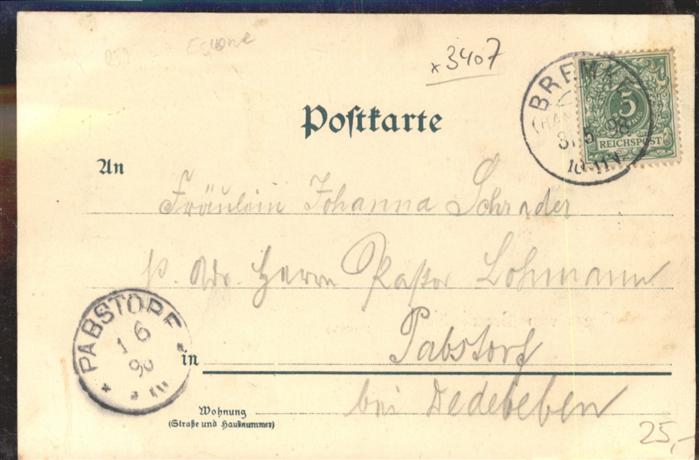 *3407
Postkarte
BREMKE
(HAN
31 5 98
10-11V
5
REICHSPOST
An
Fräulein Johanna Schrader
p. Adr. Herrn Pastor Lohmann
PABSTORF
1 6
in
Pabstorf
bei Dedeleben
Wohnung
(Straße und Hausnummer)
25,-